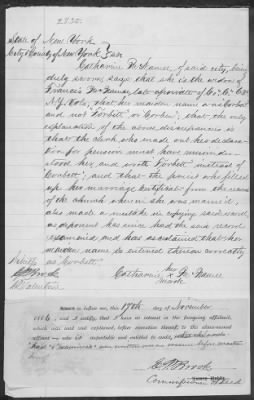 2335.
State of New York
City & County of New York } ss
Catharine McNamee, of said city, being
duly sworn, says that she is the widow of
Francis McNamee late a private of Co. "C"
N.Y. Vols, that her maiden name was Corbett
and not "Forbett" or "Corbin"; that the only
explanation of the above discrepancies is
that the clerk who made out his declara-
tion for pension must have misunder-
stood her, and wrote "Forbett" instead of
"Corbett"; and that the priest who filled
up her marriage certificate from the records
of the church wherein she was married,
also made a mistake in copying said word,
as deponent has since had the said record
examined and has ascertained that her
maiden name is entered therein correctly
as Corbett.
Catharine her x mark McNamee
Sworn to before me, this 17th day of November
1886, and I certify that I have no interest in the foregoing affidavit,
which was read and explained, before execution thereof, to the above-named
affiant who is reputable and entitled to credit,
Brook
Commissioner of Deeds